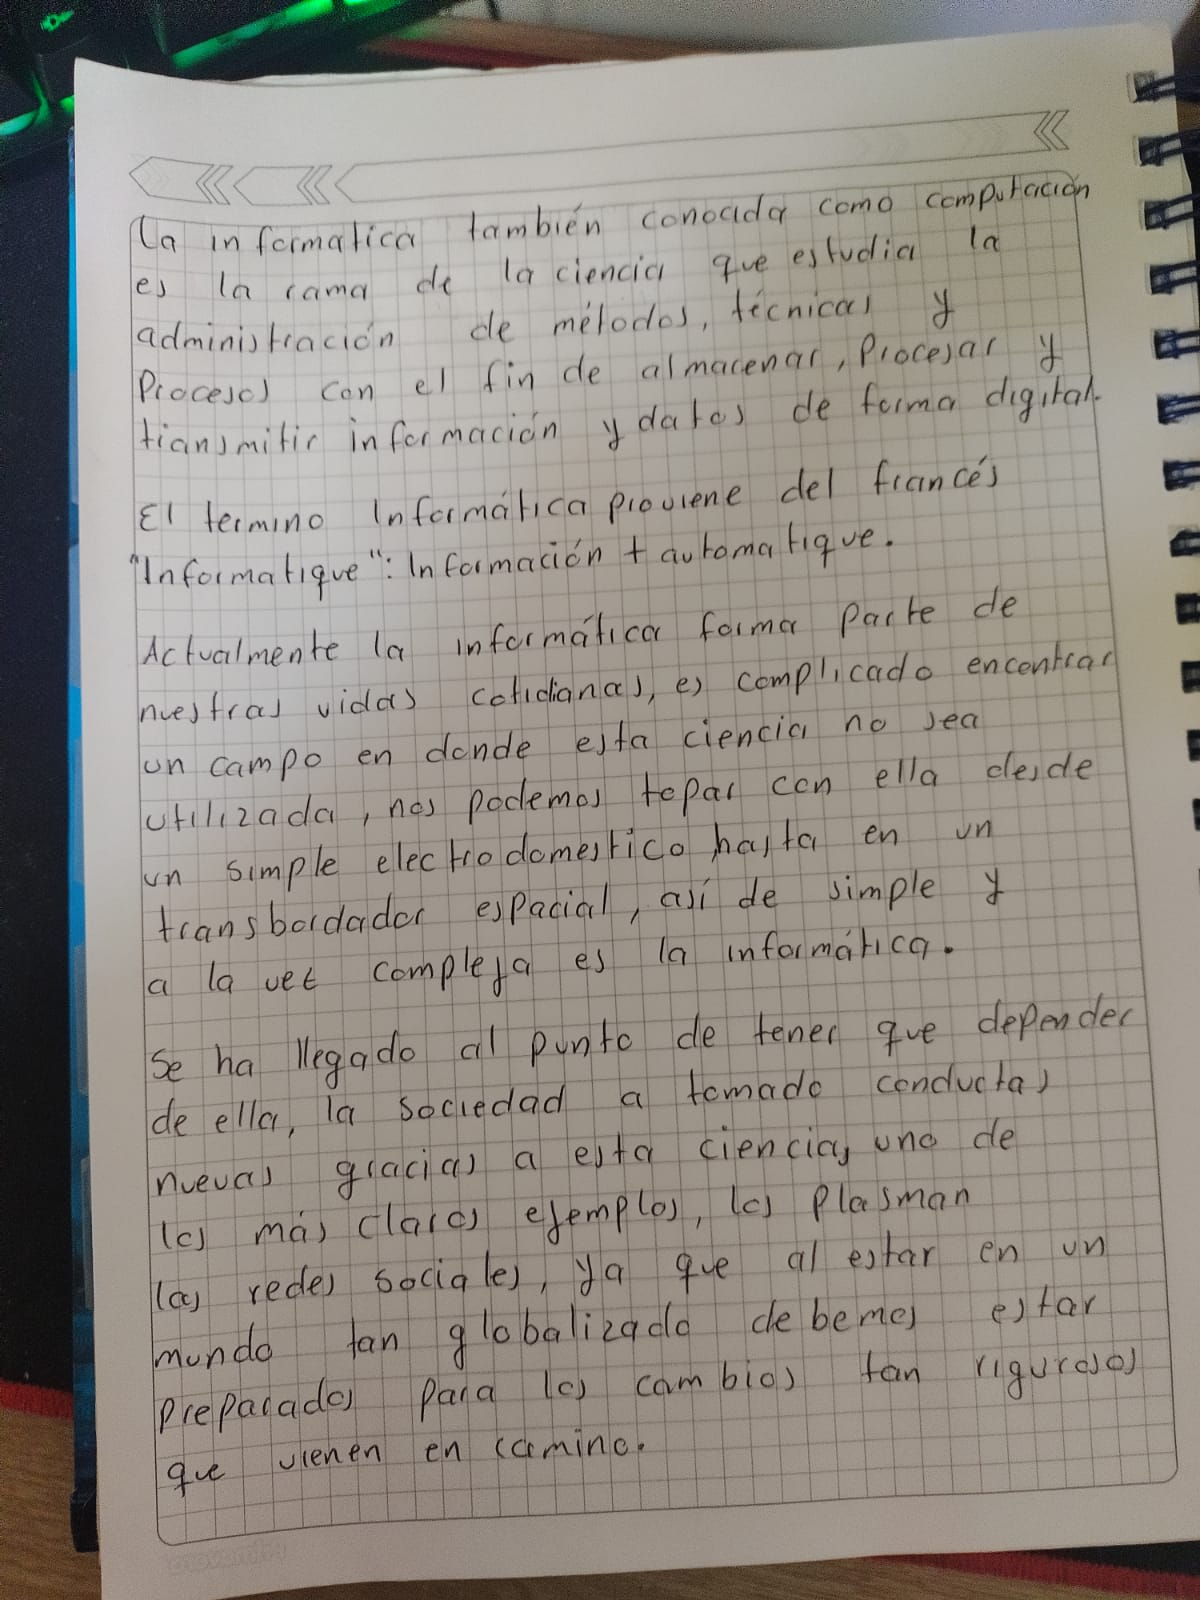 La informatica también conocida como computación
es la rama de la ciencia que estudia la
administración de métodos, técnicas y
Procesos con el fin de almacenar, Procesar y
transmitir información y datos de forma digital.
El termino Informática proviene del francés
"Informatique": Información + automatique.
Actualmente la informática forma parte de
nuestras vidas cotidianas, es complicado encontrar
un campo en donde esta ciencia no sea
utilizada, nos podemos topar con ella desde
un simple electrodomestico hasta en un
transbordador espacial, así de simple y
a la vez compleja es la informática.
Se ha llegado al punto de tener que depender
de ella, la sociedad a tomado conductas
nuevas gracias a esta ciencia, uno de
los más claros ejemplos, los Plasman
las redes sociales, ya que al estar en un
mundo tan globalizado debemos estar
preparados para los cambios tan rigurosos
que vienen en camino.